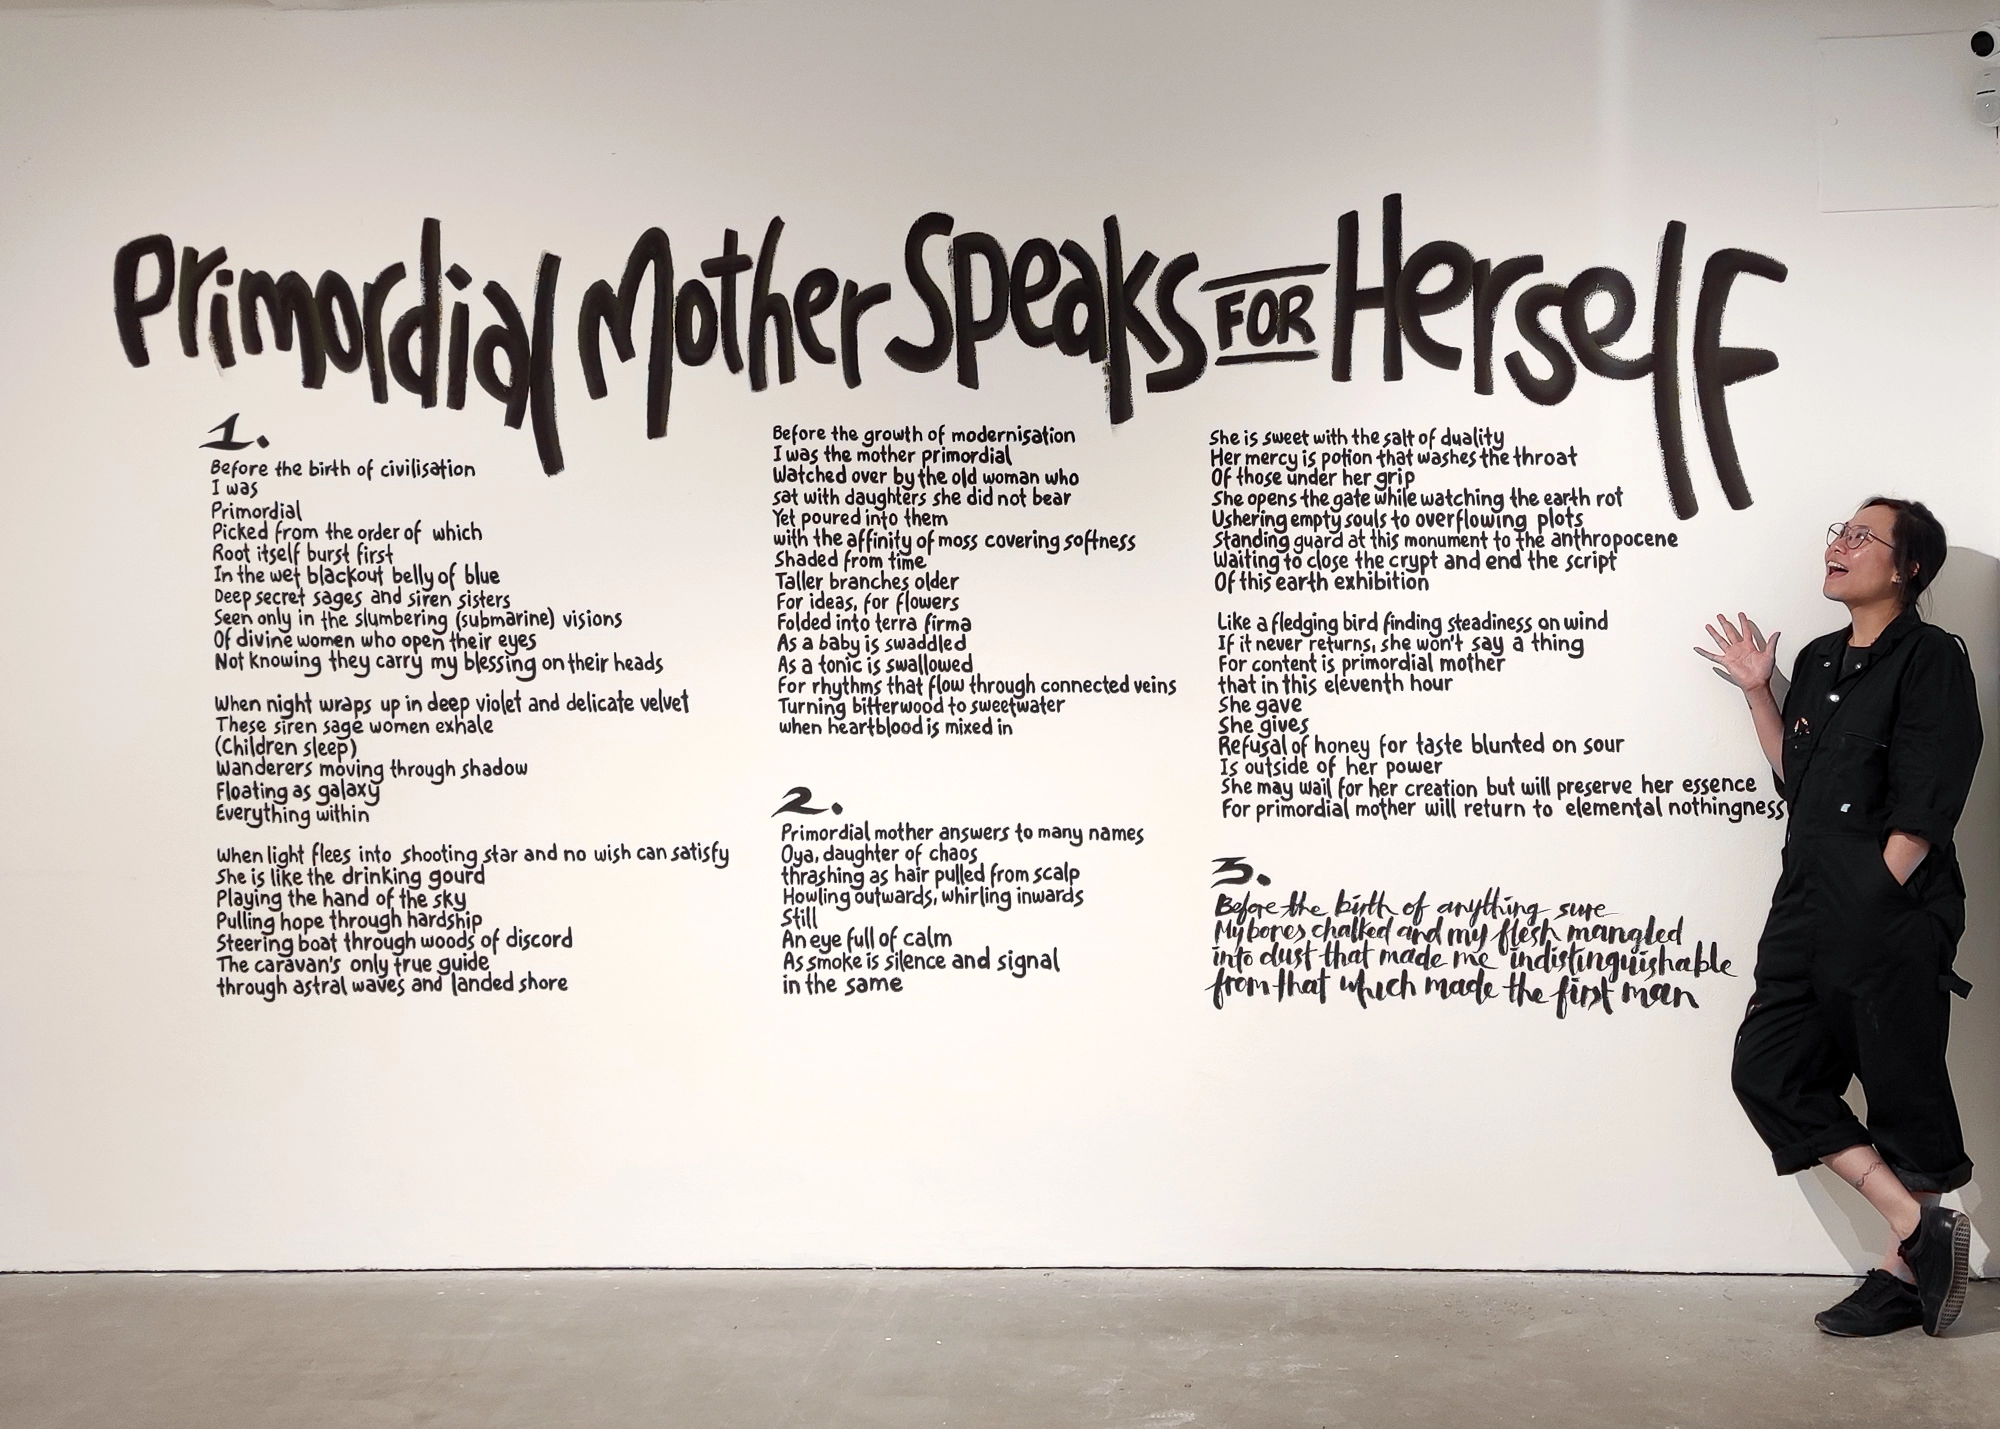 Primordial Mother Speaks FOR Herself
1.
Before the birth of civilisation
I was
Primordial
Picked from the order of which
Root itself burst first
In the wet blackout belly of blue
Deep secret sages and siren sisters
Seen only in the slumbering (submarine) visions
Of divine women who open their eyes
Not knowing they carry my blessing on their heads
When night wraps up in deep violet and delicate velvet
These siren sage women exhale
(Children sleep)
Wanderers moving through shadow
Floating as galaxy
Everything within
When light flees into shooting star and no wish can satisfy
She is like the drinking gourd
Playing the hand of the sky
Pulling hope through hardship
Steering boat through woods of discord
The caravan's only true guide
through astral waves and landed shore
Before the growth of modernisation
I was the mother primordial
Watched over by the old woman who
sat with daughters she did not bear
Yet poured into them
with the affinity of moss covering softness
Shaded from time
Taller branches older
For ideas, for flowers
Folded into terra firma
As a baby is swaddled
As a tonic is swallowed
For rhythms that flow through connected veins
Turning bitterwood to sweetwater
when heartblood is mixed in
2.
Primordial mother answers to many names
Oya, daughter of chaos
thrashing as hair pulled from scalp
Howling outwards, whirling inwards
Still
An eye full of calm
As smoke is silence and signal
in the same
She is sweet with the salt of duality
Her mercy is potion that washes the throat
Of those under her grip
She opens the gate while watching the earth rot
Ushering empty souls to overflowing plots
Standing guard at this monument to the anthropocene
Waiting to close the crypt and end the script
Of this earth exhibition
Like a fledging bird finding steadiness on wind
If it never returns, she won't say a thing
For content is primordial mother
that in this eleventh hour
She gave
She gives
Refusal of honey for taste blunted on sour
Is outside of her power
She may wail for her creation but will preserve her essence
For primordial mother will return to elemental nothingness
3.
Before the birth of anything sure
My bones chalked and my flesh mangled
into dust that made me indistinguishable
from that which made the first man